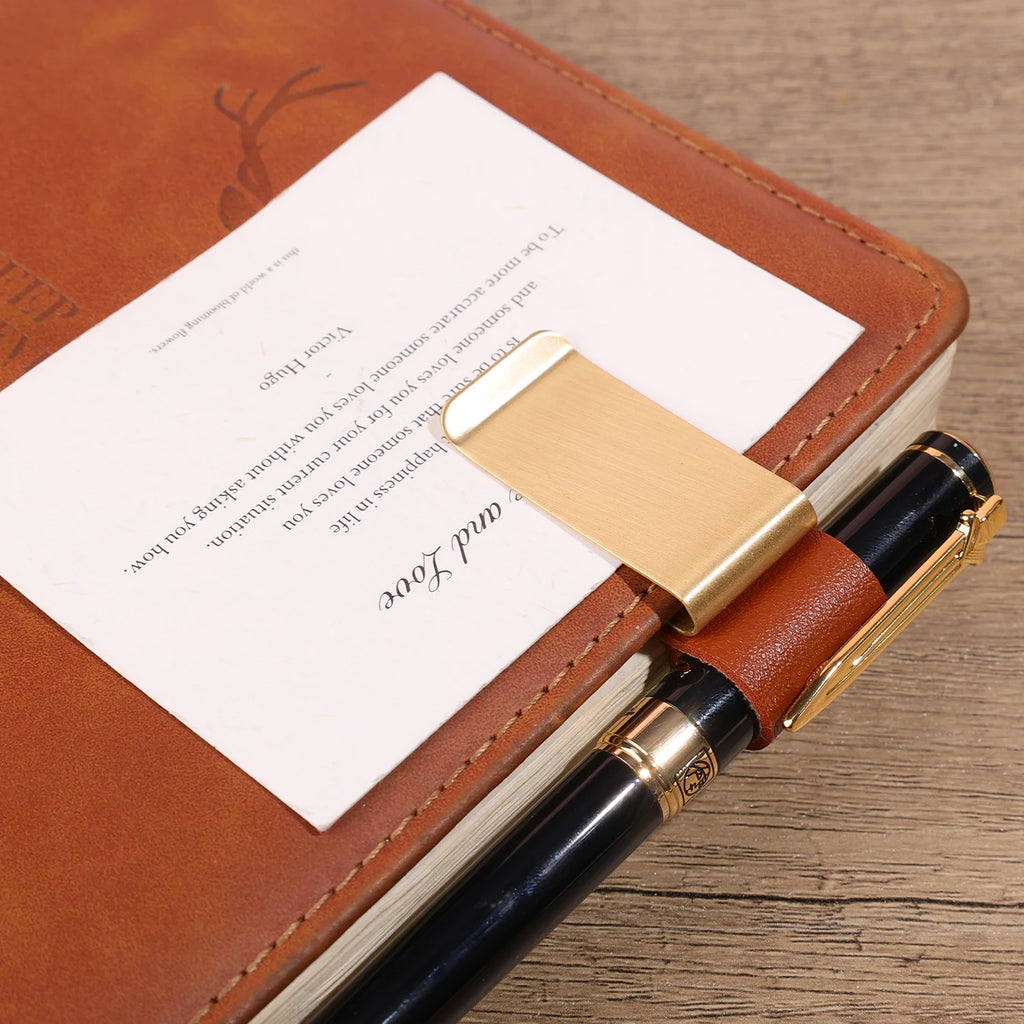 and Love
happiness in life
is to be sure that someone loves you
and someone loves you for your current situation.
To be more accurate someone loves you without asking you how.
Victor Hugo
this is a world of blooming flowers.